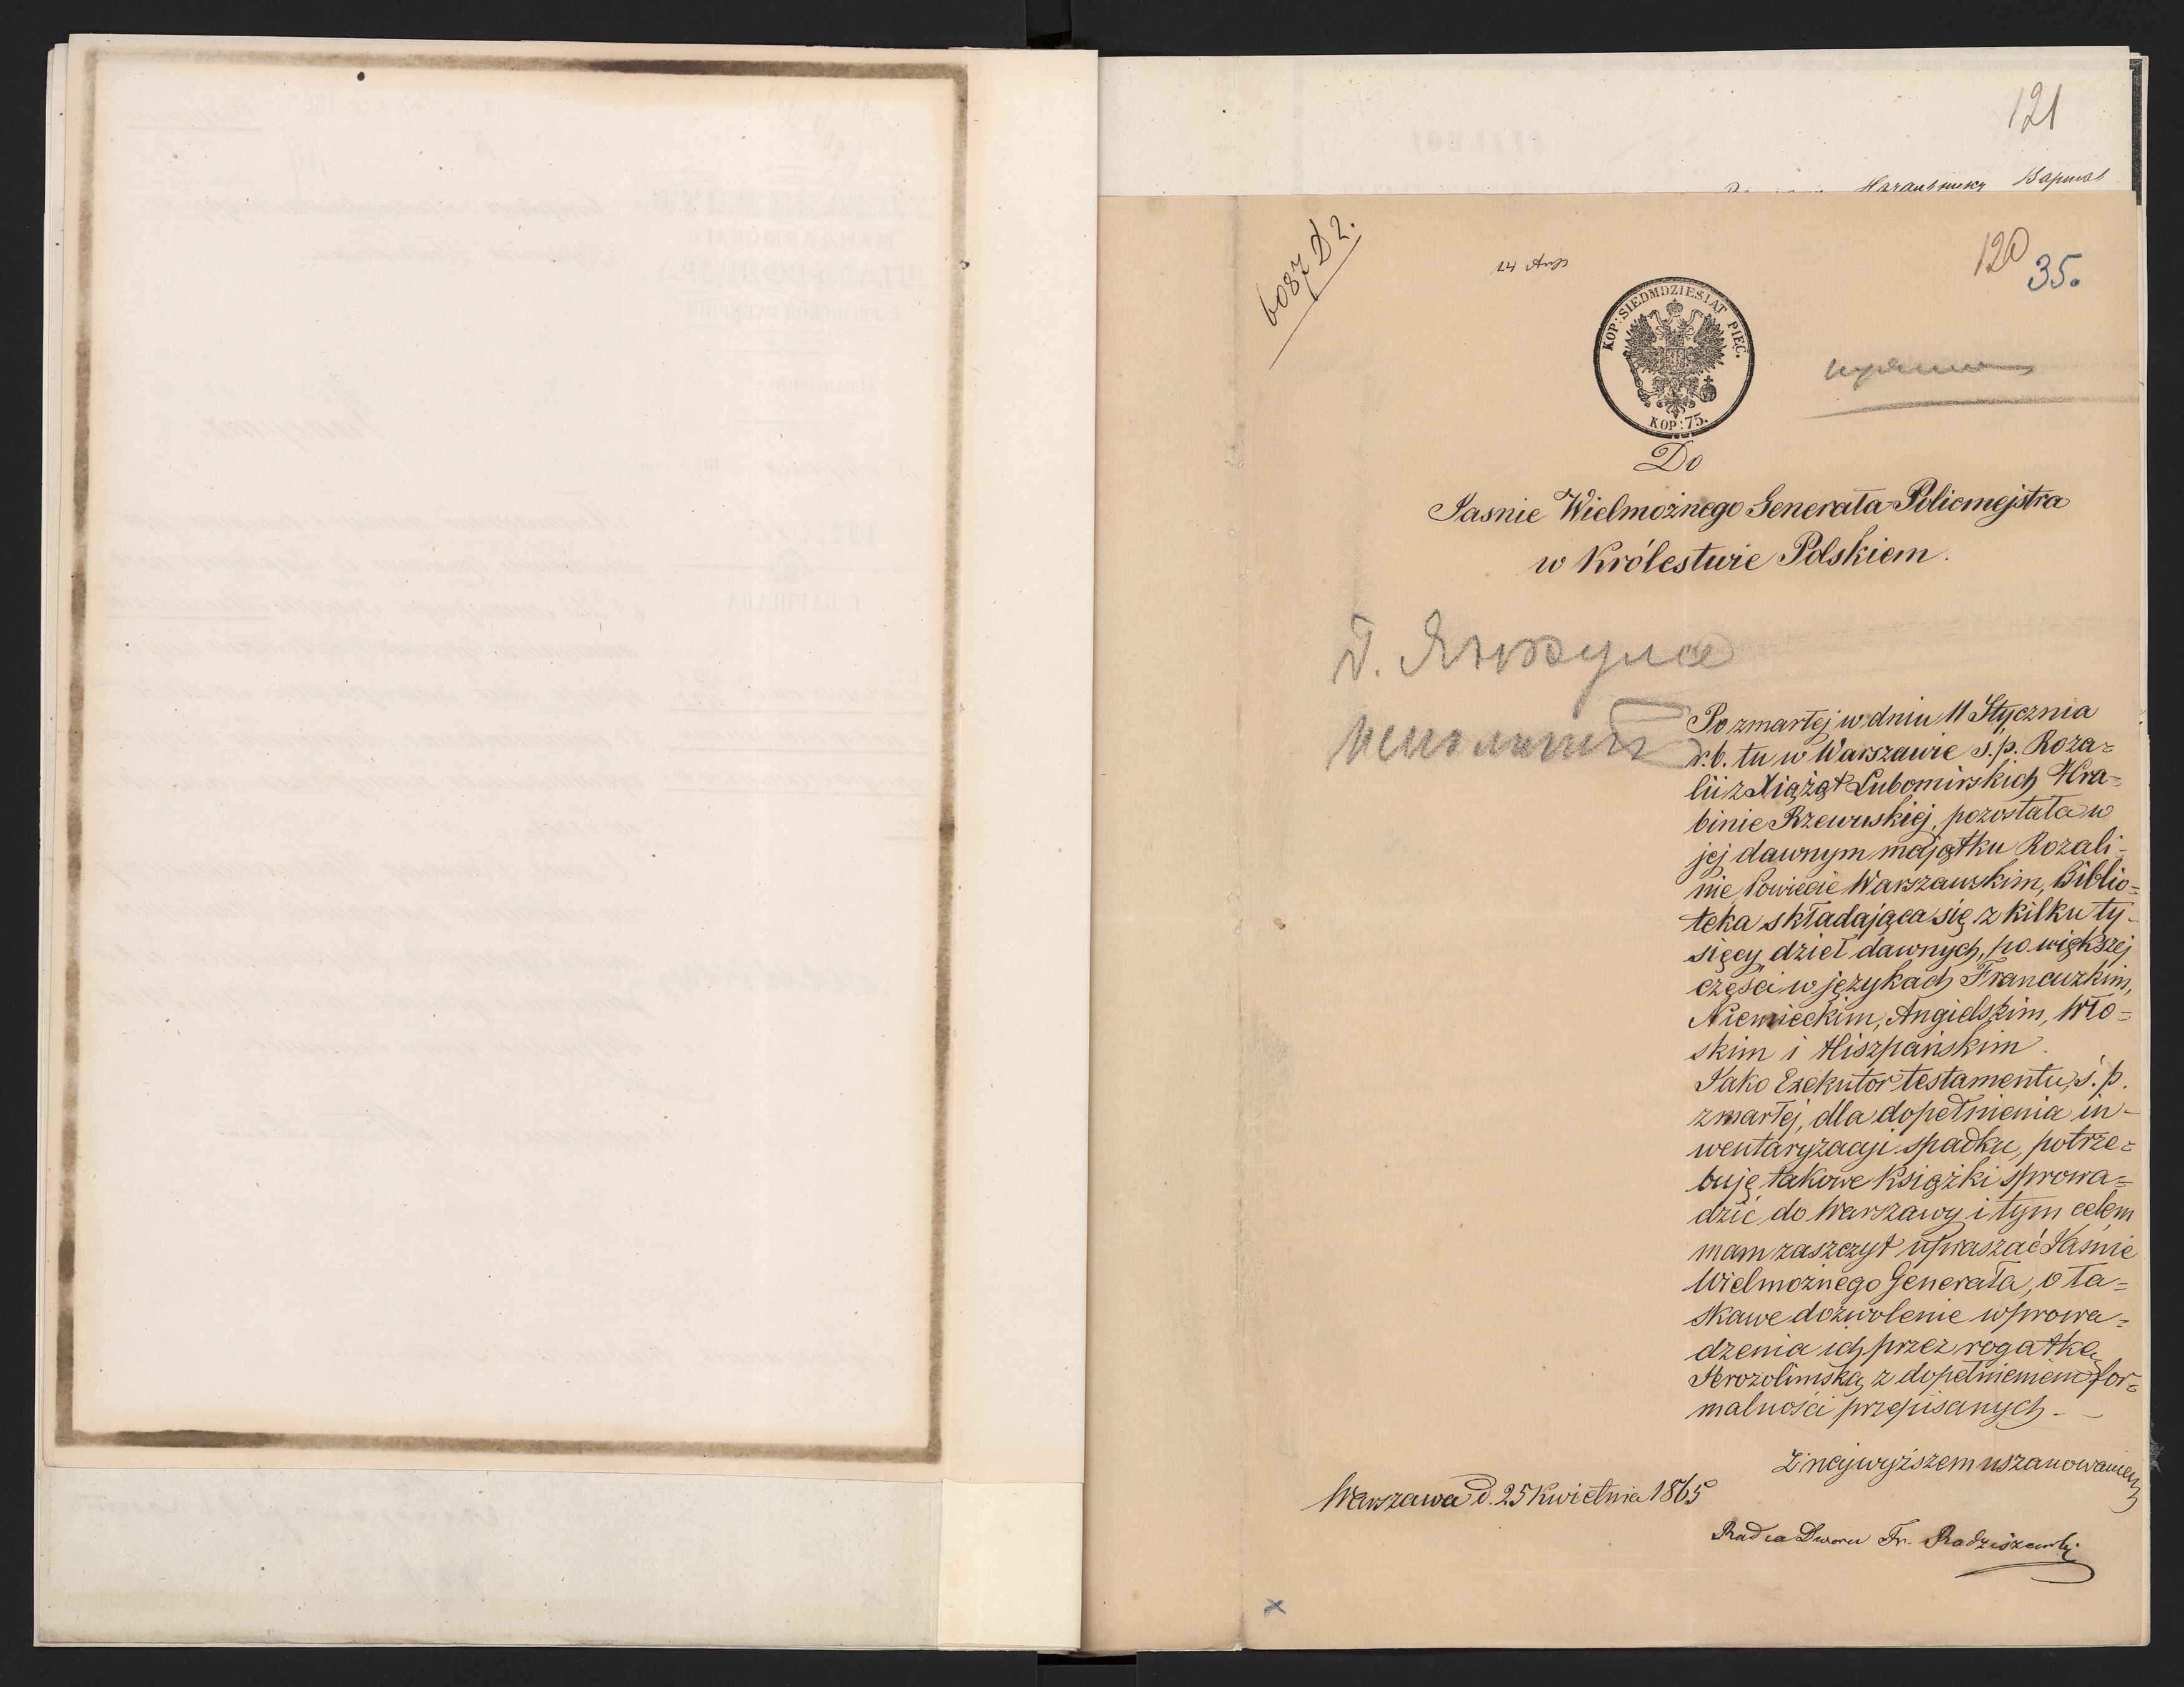 121
Варшав
6087 D2.
14 Апр
120
35.
KOP: SIEDMDZIESIAT PIĘC.
KOP: 75.
Do
Jasnie Wielmożnego Generała-Policmejstra
w Królestwie Polskiem.
Po zmarłej w dniu 11 Stycznia
r.b. tu w Warszawie ś.p. Roza=
lii z Xiążąt Lubomirskich Hra=
binie Rzewuskiej, pozostała w
jej dawnym majątku Rozali-
nie Powiecie Warszawskim, Biblio=
teka składająca się z kilku ty-
sięcy dzieł dawnych, po większej
części w językach Francuzkim,
Niemieckim, Angielskim, Wło=
skim i Hiszpańskim.
Jako Exekutor testamentu, ś.p.
zmarłej, dla dopełnienia in-
wentaryzacyi spadku, potrze=
buję takowe Książki sprowa=
dzić do Warszawy i tym celem
mam zaszczyt upraszać Jaśnie
Wielmożnego Generała, o ła=
skawe dozwolenie wprowa=
dzenia ich przez rogatkę
Jerozolimską z dopełnieniem for=
malności przepisanych.-
Z najwyższem uszanowaniem
Warszawa d. 25 Kwietnia 1865
Radca Dworu Fr. Radziszewski